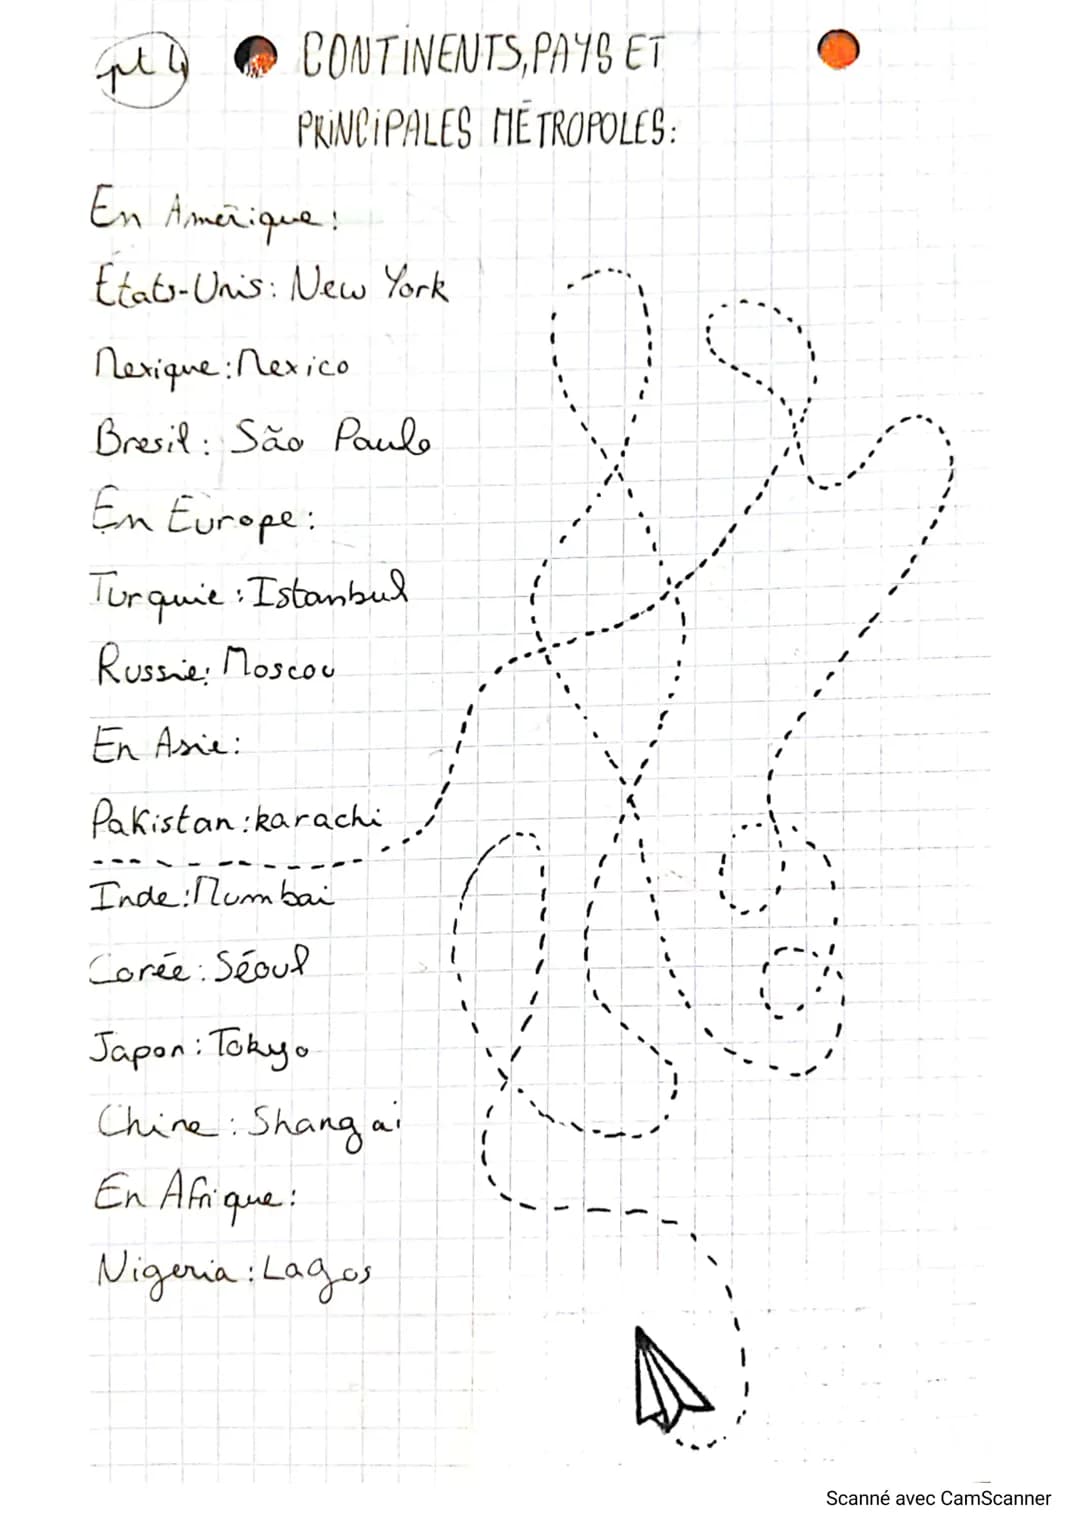 pt 4
CONTINENTS, PAYS ET
PRINCIPALES MÉTROPOLES:
En Amérique:
États-Unis: New York
Mexique: Mexico
Bresil: São Paulo
En Europe:
Turquie: Istanbul
Russie: Moscou
En Asie:
Pakistan: karachi
Inde: Mumbai
Corée: Séoul
Japon: Tokyo
Chine: Shangai
En Afrique:
Nigeria: Lagos
Scanné avec CamScanner